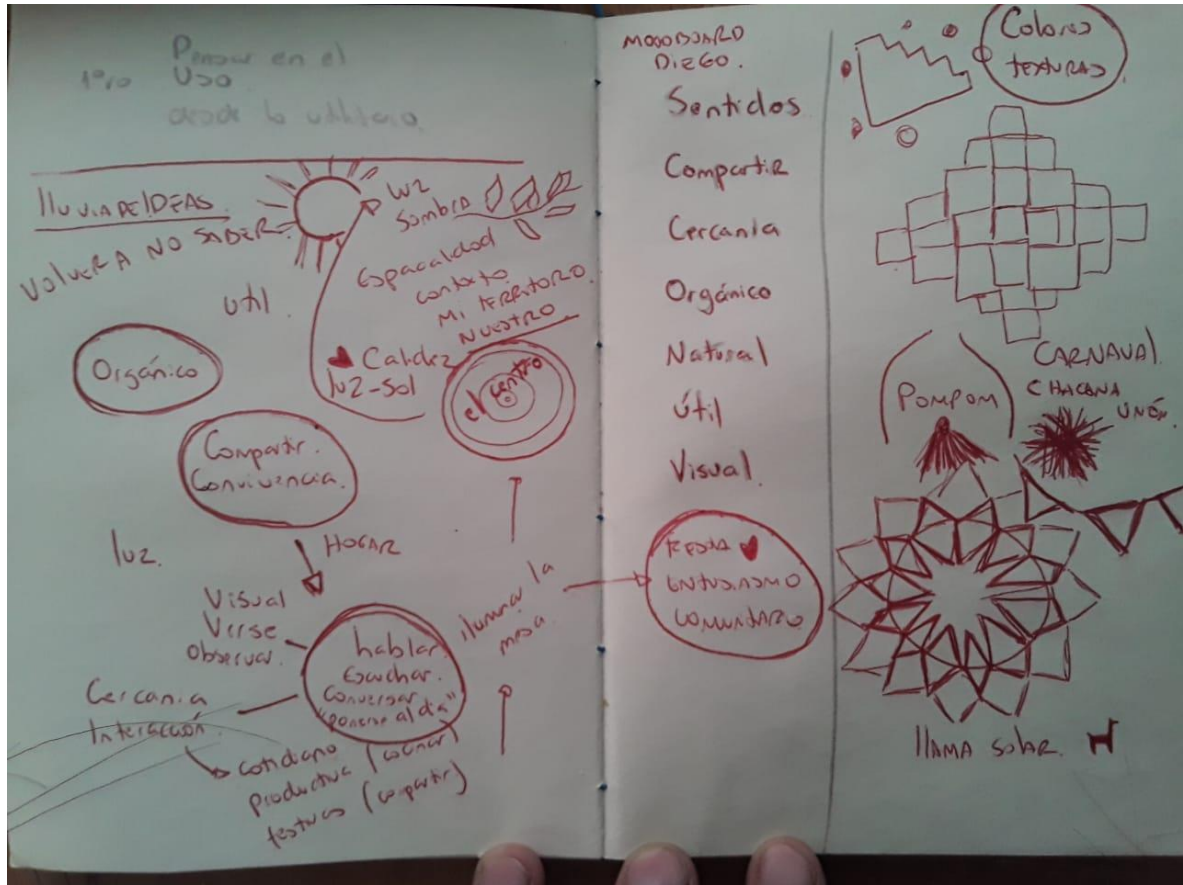 Pensar en el
1ero Uso
desde lo utilitario.
lluvia de IDEAS.
VOLVER A NO SABER
util.
luz
Sombra
Espacialidad
contexto
MI TERRITORIO.
NUESTRO
Calidez
luz-Sol
el centro
Orgánico
Compartir.
Convivencia.
luz.
HOGAR
Visual
Verse
Observar.
hablar.
Escuchar.
Conversar
"ponerse al día"
Cercania
Interacción.
cotidiano
productiva (cocinar)
festivas (compartir)
iluminar la
mesa.
MOODBOARD
DIEGO.
Sentidos
Compartir
Cercania
Orgánico
Natural
Útil
Visual.
ENTUSIASMO
COMUNITARIO
Colores
texturas.
CARNAVAL.
CHACANA
UNIÓN.
POMPOM
llama solar.